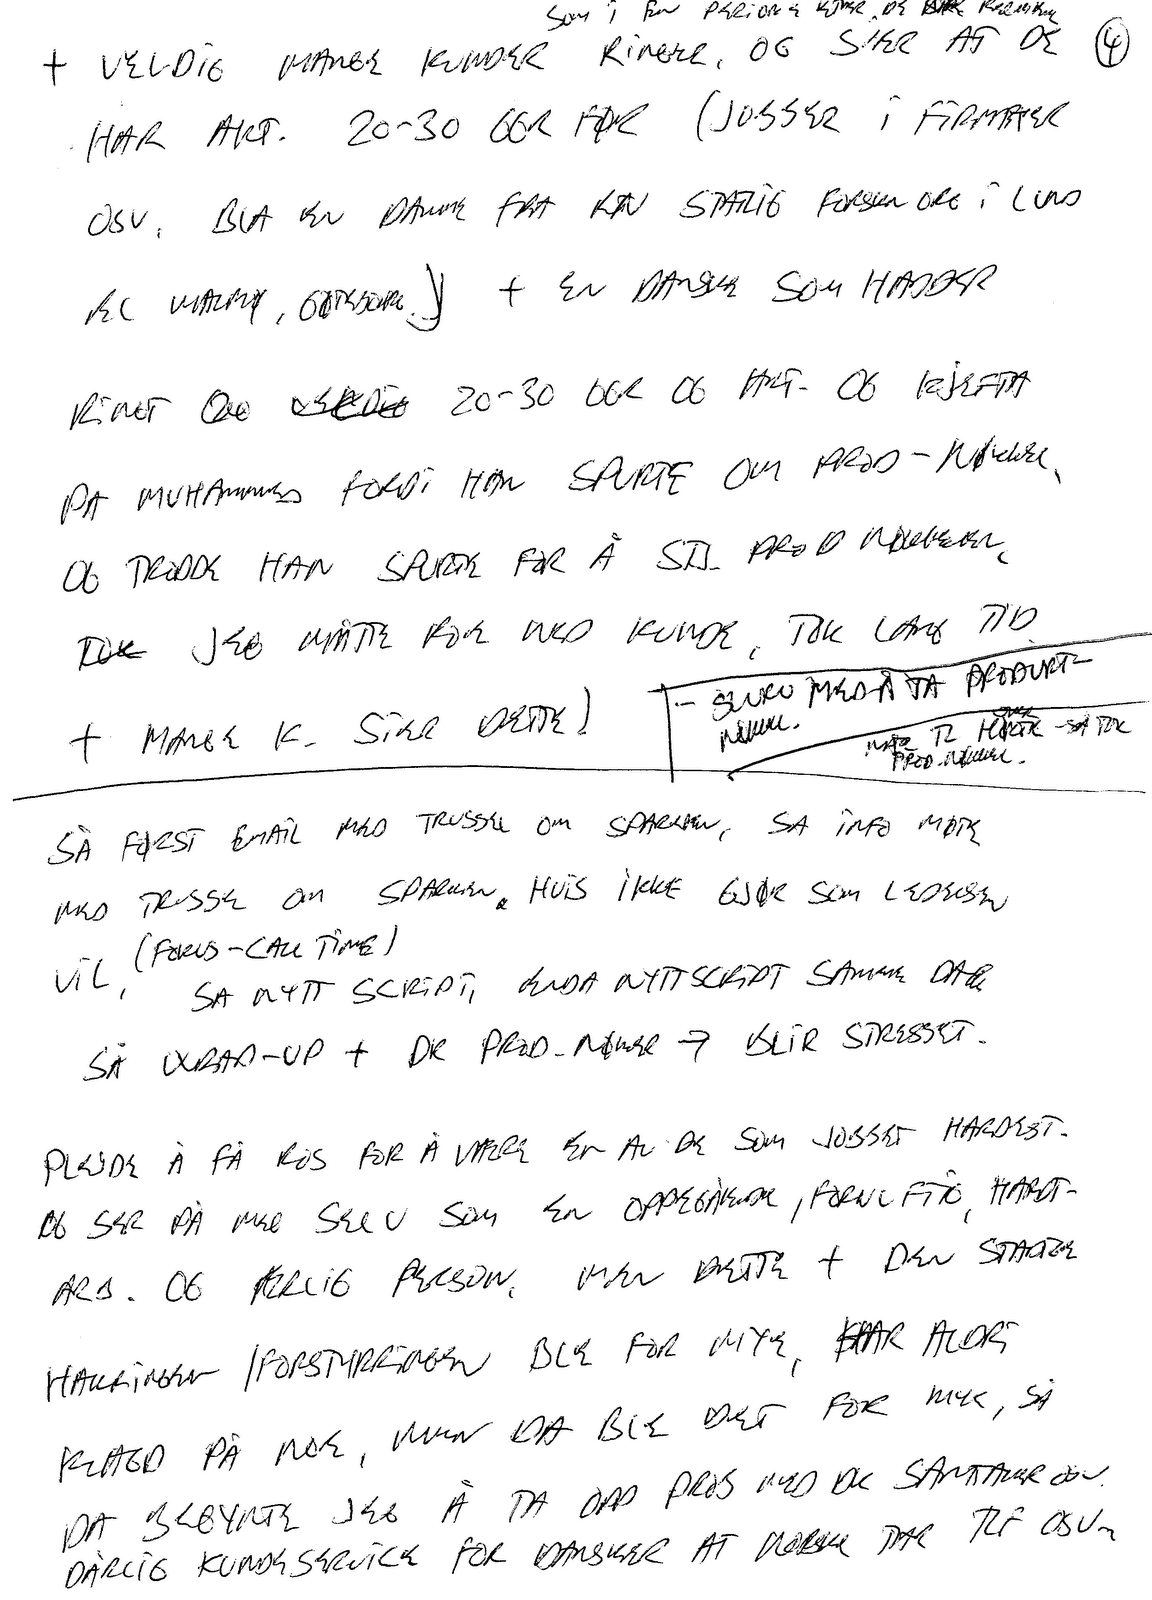 SOM I EN PERIODE ETTER DE
+ VELDIG MANGE KUNDER RINGER, OG SIER AT DE ④
HAR AKT. 20-30 GGR FØR (JOBBER I FIRMAER
OSV. BLA EN DAMME FRA EN STATLIG I LUND
EL MALMØ, GØTEBORG.) + EN DANSKE SOM HADDE
RINGT 20-30 GGR OG AKT. OG KJEFTA
PÅ MUHAMMED FORDI HAN SPURTE OM PROD-NØKKEL,
OG TRODDE HAN SPURTE FOR Å STJ. PROD NØKKELEN,
TOK JEG MÅTTE ROE NED KUNDE, TOK LANG TID
+ MANGE K. SIER DETTE!
- SLURV MED Å TA PRODUKT-
NØKKEL.
PROD.NØKKEL.
SÅ FØRST EMAIL MED TRUSSEL OM SPARKEN, SÅ INFO MØTE
MED TRUSSEL OM SPARKEN, HVIS IKKE GJØR SOM LEDELSEN
VIL, (FOKUS-CALL TIME)
SÅ NYTT SCRIPT, ENDA NYTT SCRIPT SAMME DAG
SÅ WRAP-UP + DK PROD-NØKLER → BLIR STRESSET.
PLEIDE Å FÅ ROS FOR Å VÆRE EN AV DE SOM JOBBET HARDEST.
OG SER PÅ MEG SELV SOM EN OPPEGÅENDE, FORNUFTIG, HARDT-
ARB. OG ÆRLIG PERSON. MEN DETTE + DEN STADIGE
HAKKINGEN/FORSTYRRINGEN BLE FOR MYE, HAR ALDRI
KLAGD PÅ NOE, MEN DA BLE DET FOR MYE, SÅ
DA BEGYNTE JEG Å TA OPP PROB MED DK SAMTALER OSV.
DÅRLIG KUNDESERVICE FOR DANSKER AT NORSKE TAR TLF OSV.